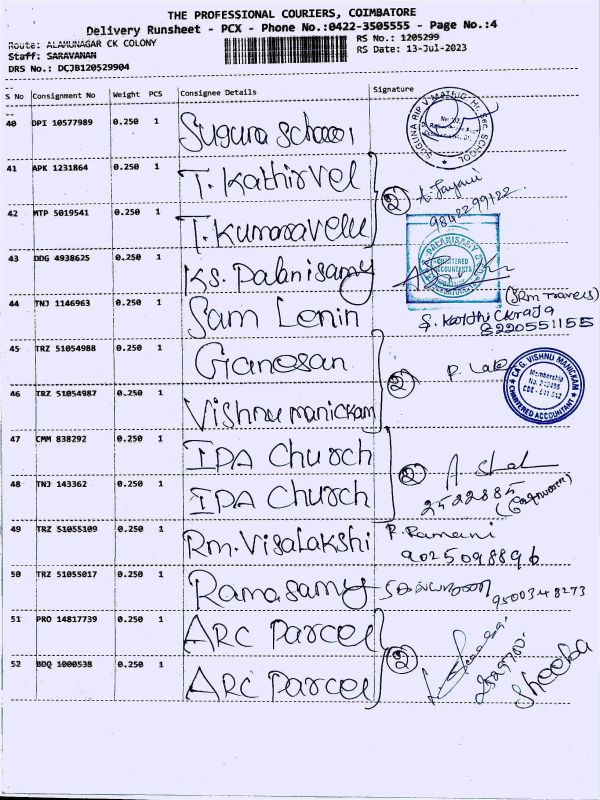 THE PROFESSIONAL COURIERS, COIMBATORE
Delivery Runsheet - PCX - Phone No.:0422-3505555 - Page No.:4
Route: ALAMUNAGAR CK COLONY
RS No.: 1205299
Staff: SARAVANAN
RS Date: 13-Jul-2023
DRS No.: DCJB120529904
S No Consignment No Weight PCS Consignee Details Signature
40 DPI 10577989 0.250 1 Suguna School
SUGUNA RIP V MATRIC. Hr. Sec. SCHOOL
41 APK 1231864 0.250 1 T. Kathirvel
42 MTP 5019541 0.250 1 T. Kumaravelu
2 A. Jayani
9842299122
43 DDG 4938625 0.250 1 KS. Palanisamy
CHARTERED
ACCOUNTANTS
44 TNJ 1146963 0.250 1 Sam Lenin
(SRM Travels)
8220551155
45 TRZ 51054988 0.250 1 Ganesan
46 TRZ 51054987 0.250 1 Vishnu manickam
2 P. Late
CA G. VISHNU MANICKAN
Membership
CHARTERED ACCOUNTANT
47 CMM 838292 0.250 1 IPA Church
48 TNJ 143362 0.250 1 IPA Church
2 A Shah
2522885
49 TRZ 51055109 0.250 1 Rm. Visalakshi
P. Ramani
9025098896
50 TRZ 51055017 0.250 1 Ramasamy
9500348273
51 PRO 14817739 0.250 1 ARC Parcel
52 BDQ 1000538 0.250 1 ARC Parcel
2
Sheeba